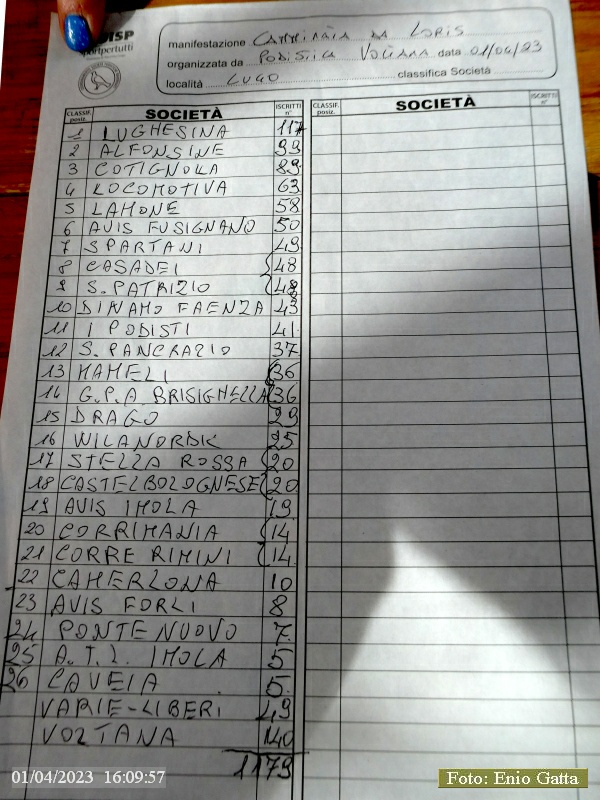 ISP
portpertutti
manifestazione CAMMINATA DA LORIS
organizzata da PODISTICA VOLTANA data 01/04/23
località LUGO classifica Società
CLASSIF. posiz. SOCIETÀ ISCRITTI n° CLASSIF. posiz. SOCIETÀ ISCRITTI n°
1 LUGHESINA 117
2 ALFONSINE 99
3 COTIGNOLA 89
4 LOCOMOTIVA 63
5 LAMONE 58
6 AVIS FUSIGNANO 50
7 SPARTANI 49
8 CASADEI 48
9 S. PATRIZIO 48
10 DINAMO FAENZA 43
11 I PODISTI 41
12 S. PANCRAZIO 37
13 MAMELI 36
14 G.P.A BRISIGHELLA 36
15 DRAGO 29
16 WILANORDIK 25
17 STELLA ROSSA 20
18 CASTELBOLOGNESE 20
19 AVIS IMOLA 19
20 CORRIMANIA 14
21 CORRE RIMINI 14
22 CAMERLONA 10
23 AVIS FORLI 8
24 PONTE NUOVO 7
25 A.T.L. IMOLA 5
26 CAVEIA 5
VARIE-LIBERI 49
VOLTANA 140
1179
01/04/2023 16:09:57
Foto: Enio Gatta